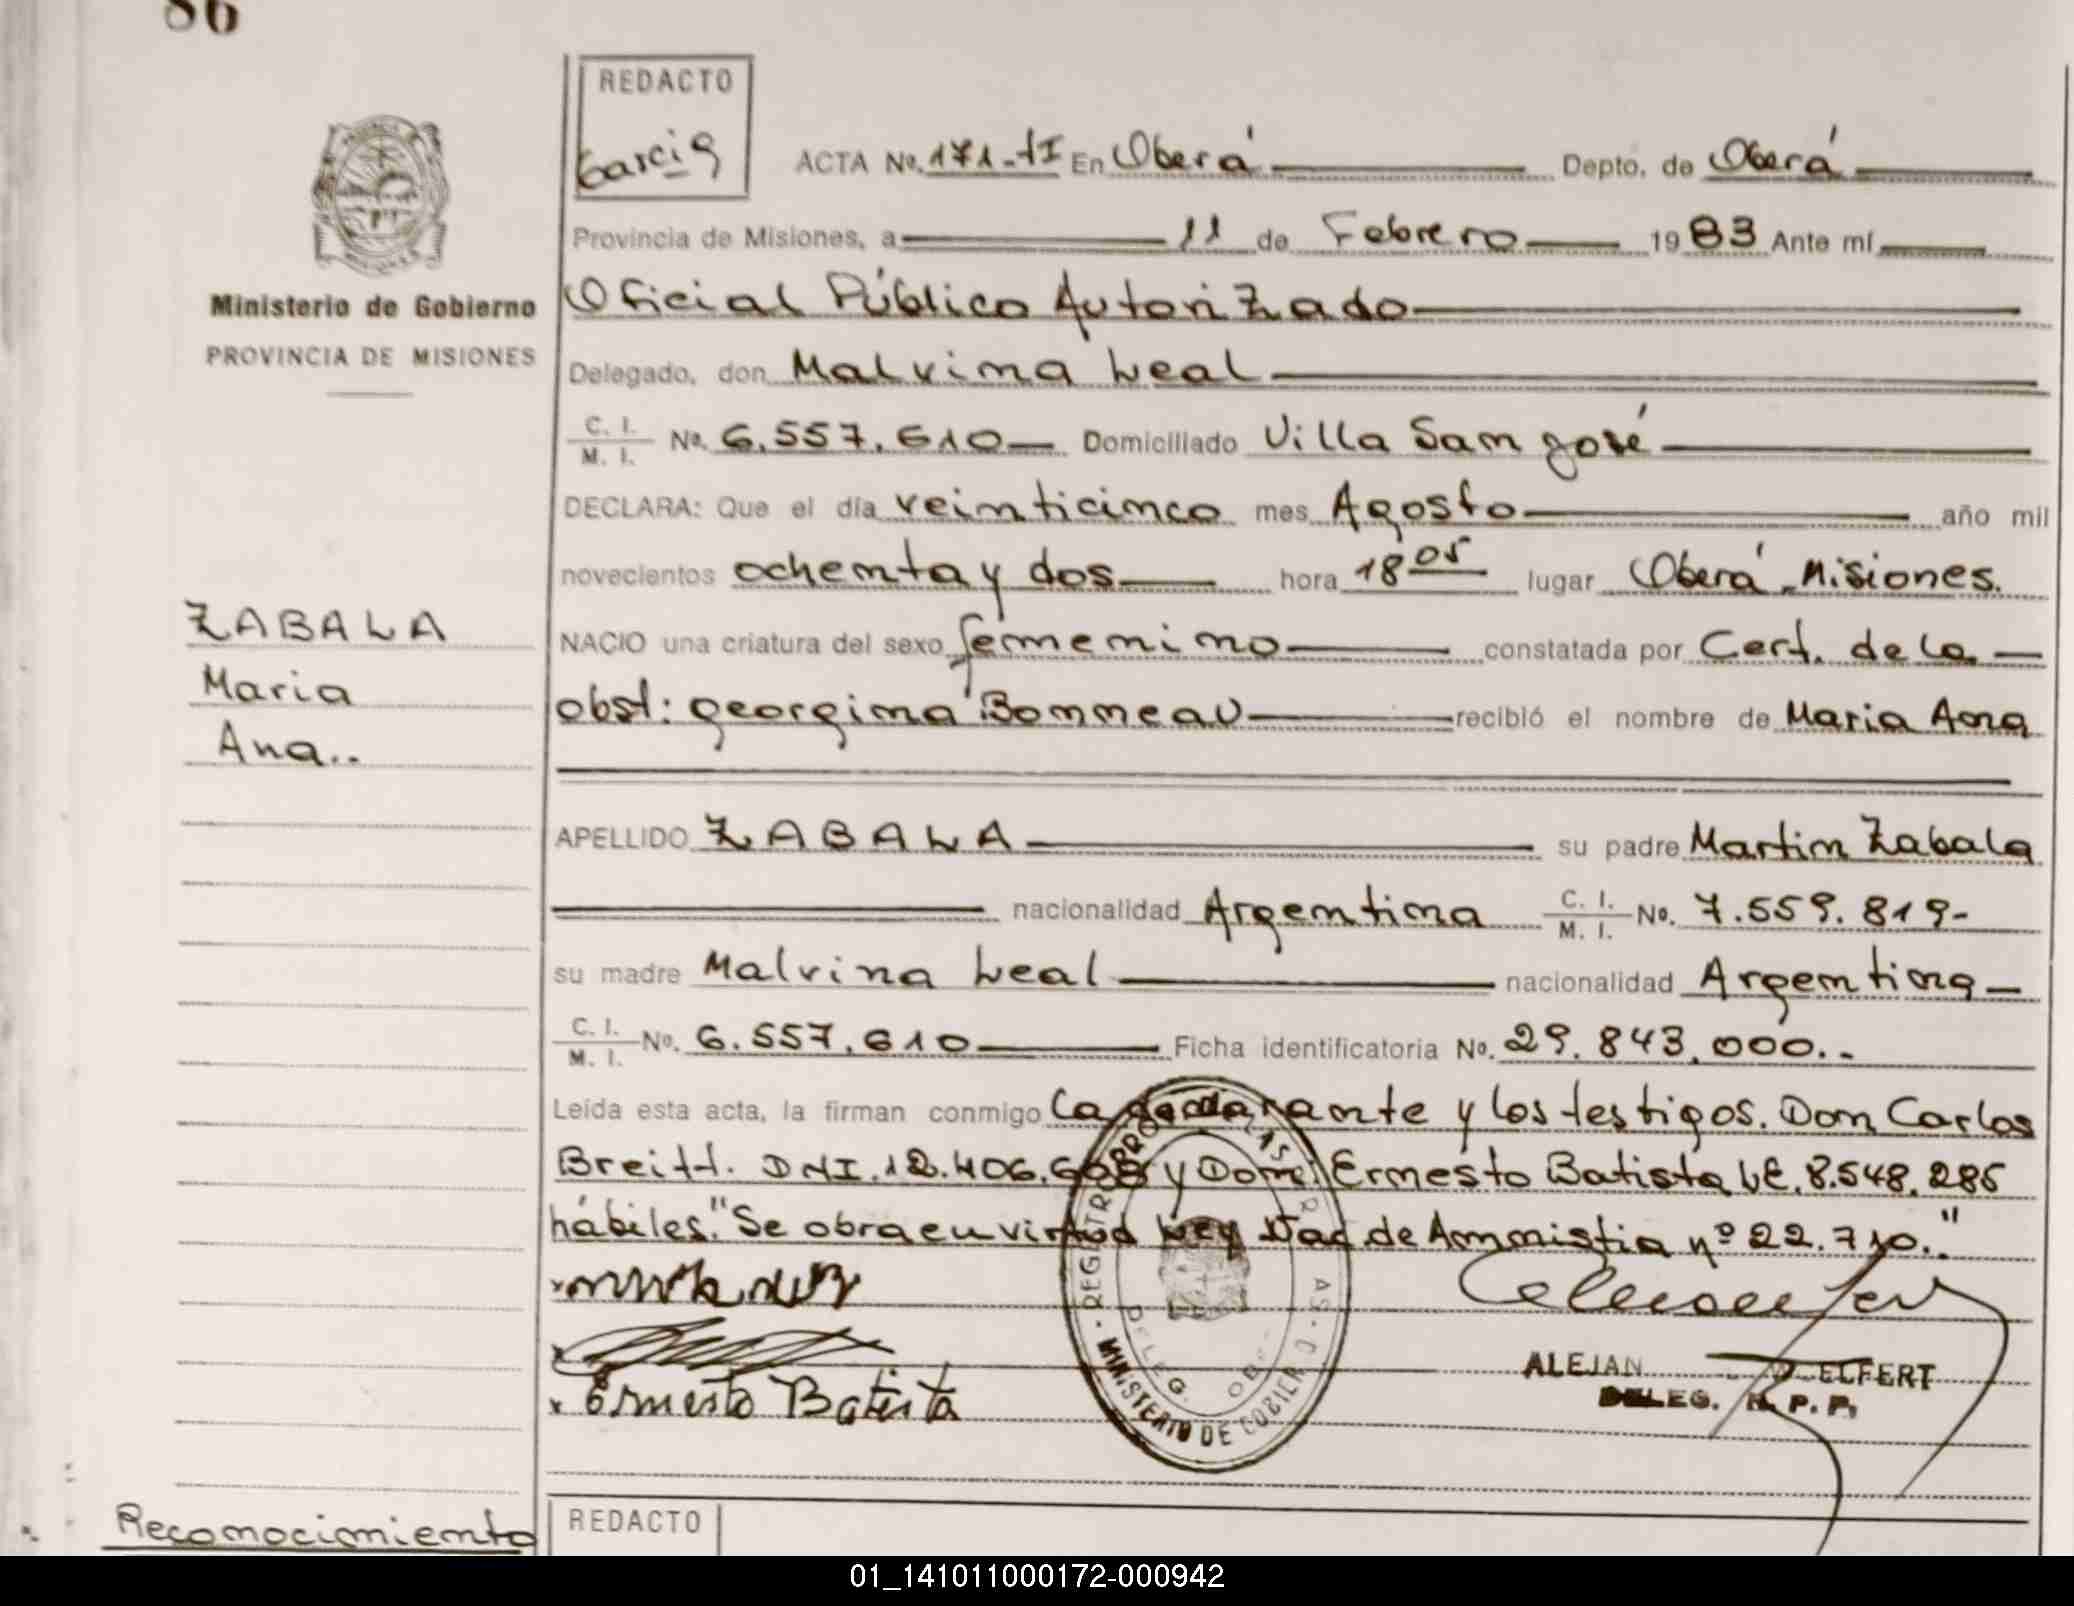 86
REDACTO
Garcia
ACTA No. 171-TI En Oberá Depto. de Oberá
Provincia de Misiones, a 11 de Febrero 1983 Ante mí
Ministerio de Gobierno
PROVINCIA DE MISIONES
Oficial Público Autorizado
Delegado, don Malvina Leal
C. I. / M. I. No. 6.557.610 Domiciliado Villa San José
DECLARA: Que el día veinticinco mes Agosto año mil
novecientos ochenta y dos hora 18 05 lugar Oberá - Misiones.
ZABALA
Maria
Ana..
NACIO una criatura del sexo femenino constatada por Cert. de la
obst: Georgina Bonneau recibló el nombre de Maria Ana
APELLIDO ZABALA su padre Martin Zabala
nacionalidad Argentina C. I. / M. I. No. 7.559.819-
su madre Malvina Leal nacionalidad Argentina
C. I. / M. I. No. 6.557.610 Ficha identificatoria No. 29.843.000.-
Leída esta acta, la firman conmigo la declarante y los testigos. Don Carlos
Breitt. DNI. 12.406. y Don Ernesto Batista LE. 8.548.286
hábiles. "Se obra en virtud Ley Nac de Amnistia nº 22.710."
Ernesto Batista
ALEJAN ELFERT
DELEG. R. P. P.
MINISTERIO DE GOBIER
DELEG.
Reconocimiento
REDACTO
01_141011000172-000942